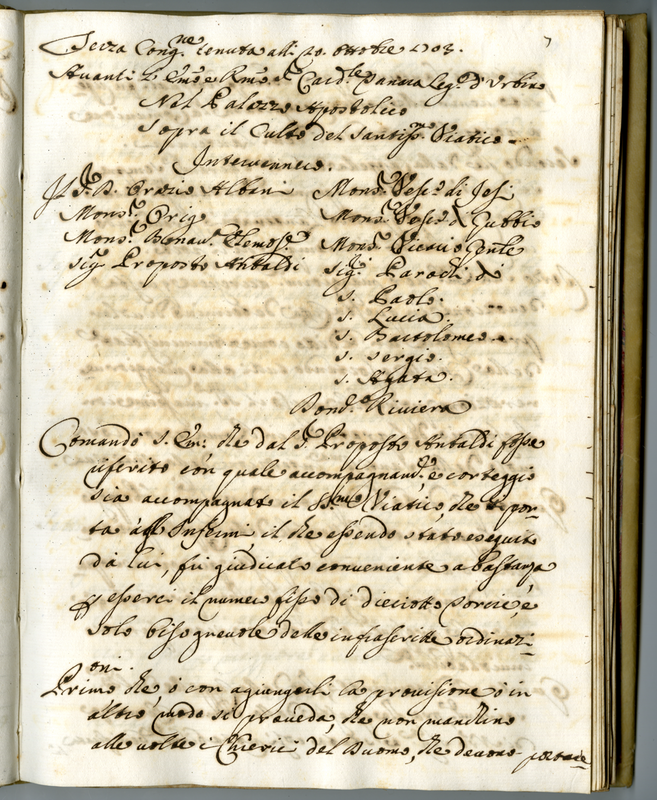 7
Terza Cong.ne tenuta alli 20. ottobre 1703.
Avanti l'Em.o e R.mo S.r Card.le Leg.o d'Urbino
Nel Palazzo Apostolico
Sopra il Culto del Santiss.mo Viatico
Intervennero.
Il S.r D. Orazio Albani Mons.r Vesc.o di Jesi
Mons.r Origo Mons.r Vesc.o di Gubbio
Mons.r Mons.r Vicario
Sig.r Proposto Antaldi Sig.ri Parochi di
S. Paolo.
S. Lucia.
S. Bartolomeo.
S. Sergio.
S. Agata.
Riviera
Comandò S. Em: che dal S.r Proposto Antaldi fosse
riferito con quale accompagnam.to e corteggio
sia accompagnato il SS.mo Viatico, che si por-
ta agl'Infermi il che essendo stato eseguito
dà lui, fù giudicato conveniente a bastanza
p esserci il numero fisso di dieciotto Torcie, e
solo bisognevole delle infrascritte ordinazi-
oni.
Primo che, ò con agiungerli la provisione ò in
altro modo si proveda, che non manchino
alle volte i Chierici del Duomo, che devono portare